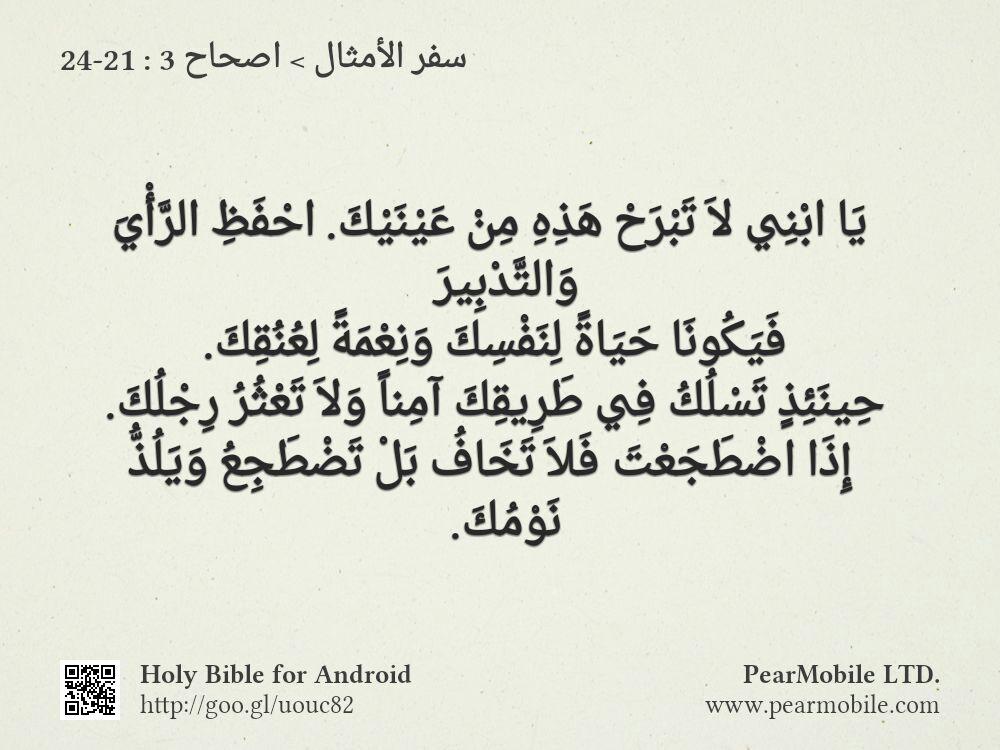 سفر الأمثال > اصحاح 3 : 21-24
يَا ابْنِي لاَ تَبْرَحْ هَذِهِ مِنْ عَيْنَيْكَ. احْفَظِ الرَّأْيَ
وَالتَّدْبِيرَ
فَيَكُونَا حَيَاةً لِنَفْسِكَ وَنِعْمَةً لِعُنُقِكَ.
حِينَئِذٍ تَسْلُكُ فِي طَرِيقِكَ آمِناً وَلاَ تَعْثُرُ رِجْلُكَ.
إِذَا اضْطَجَعْتَ فَلاَ تَخَافُ بَلْ تَضْطَجِعُ وَيَلُذُّ
نَوْمُكَ.
Holy Bible for Android
http://goo.gl/uouc82
PearMobile LTD.
www.pearmobile.com